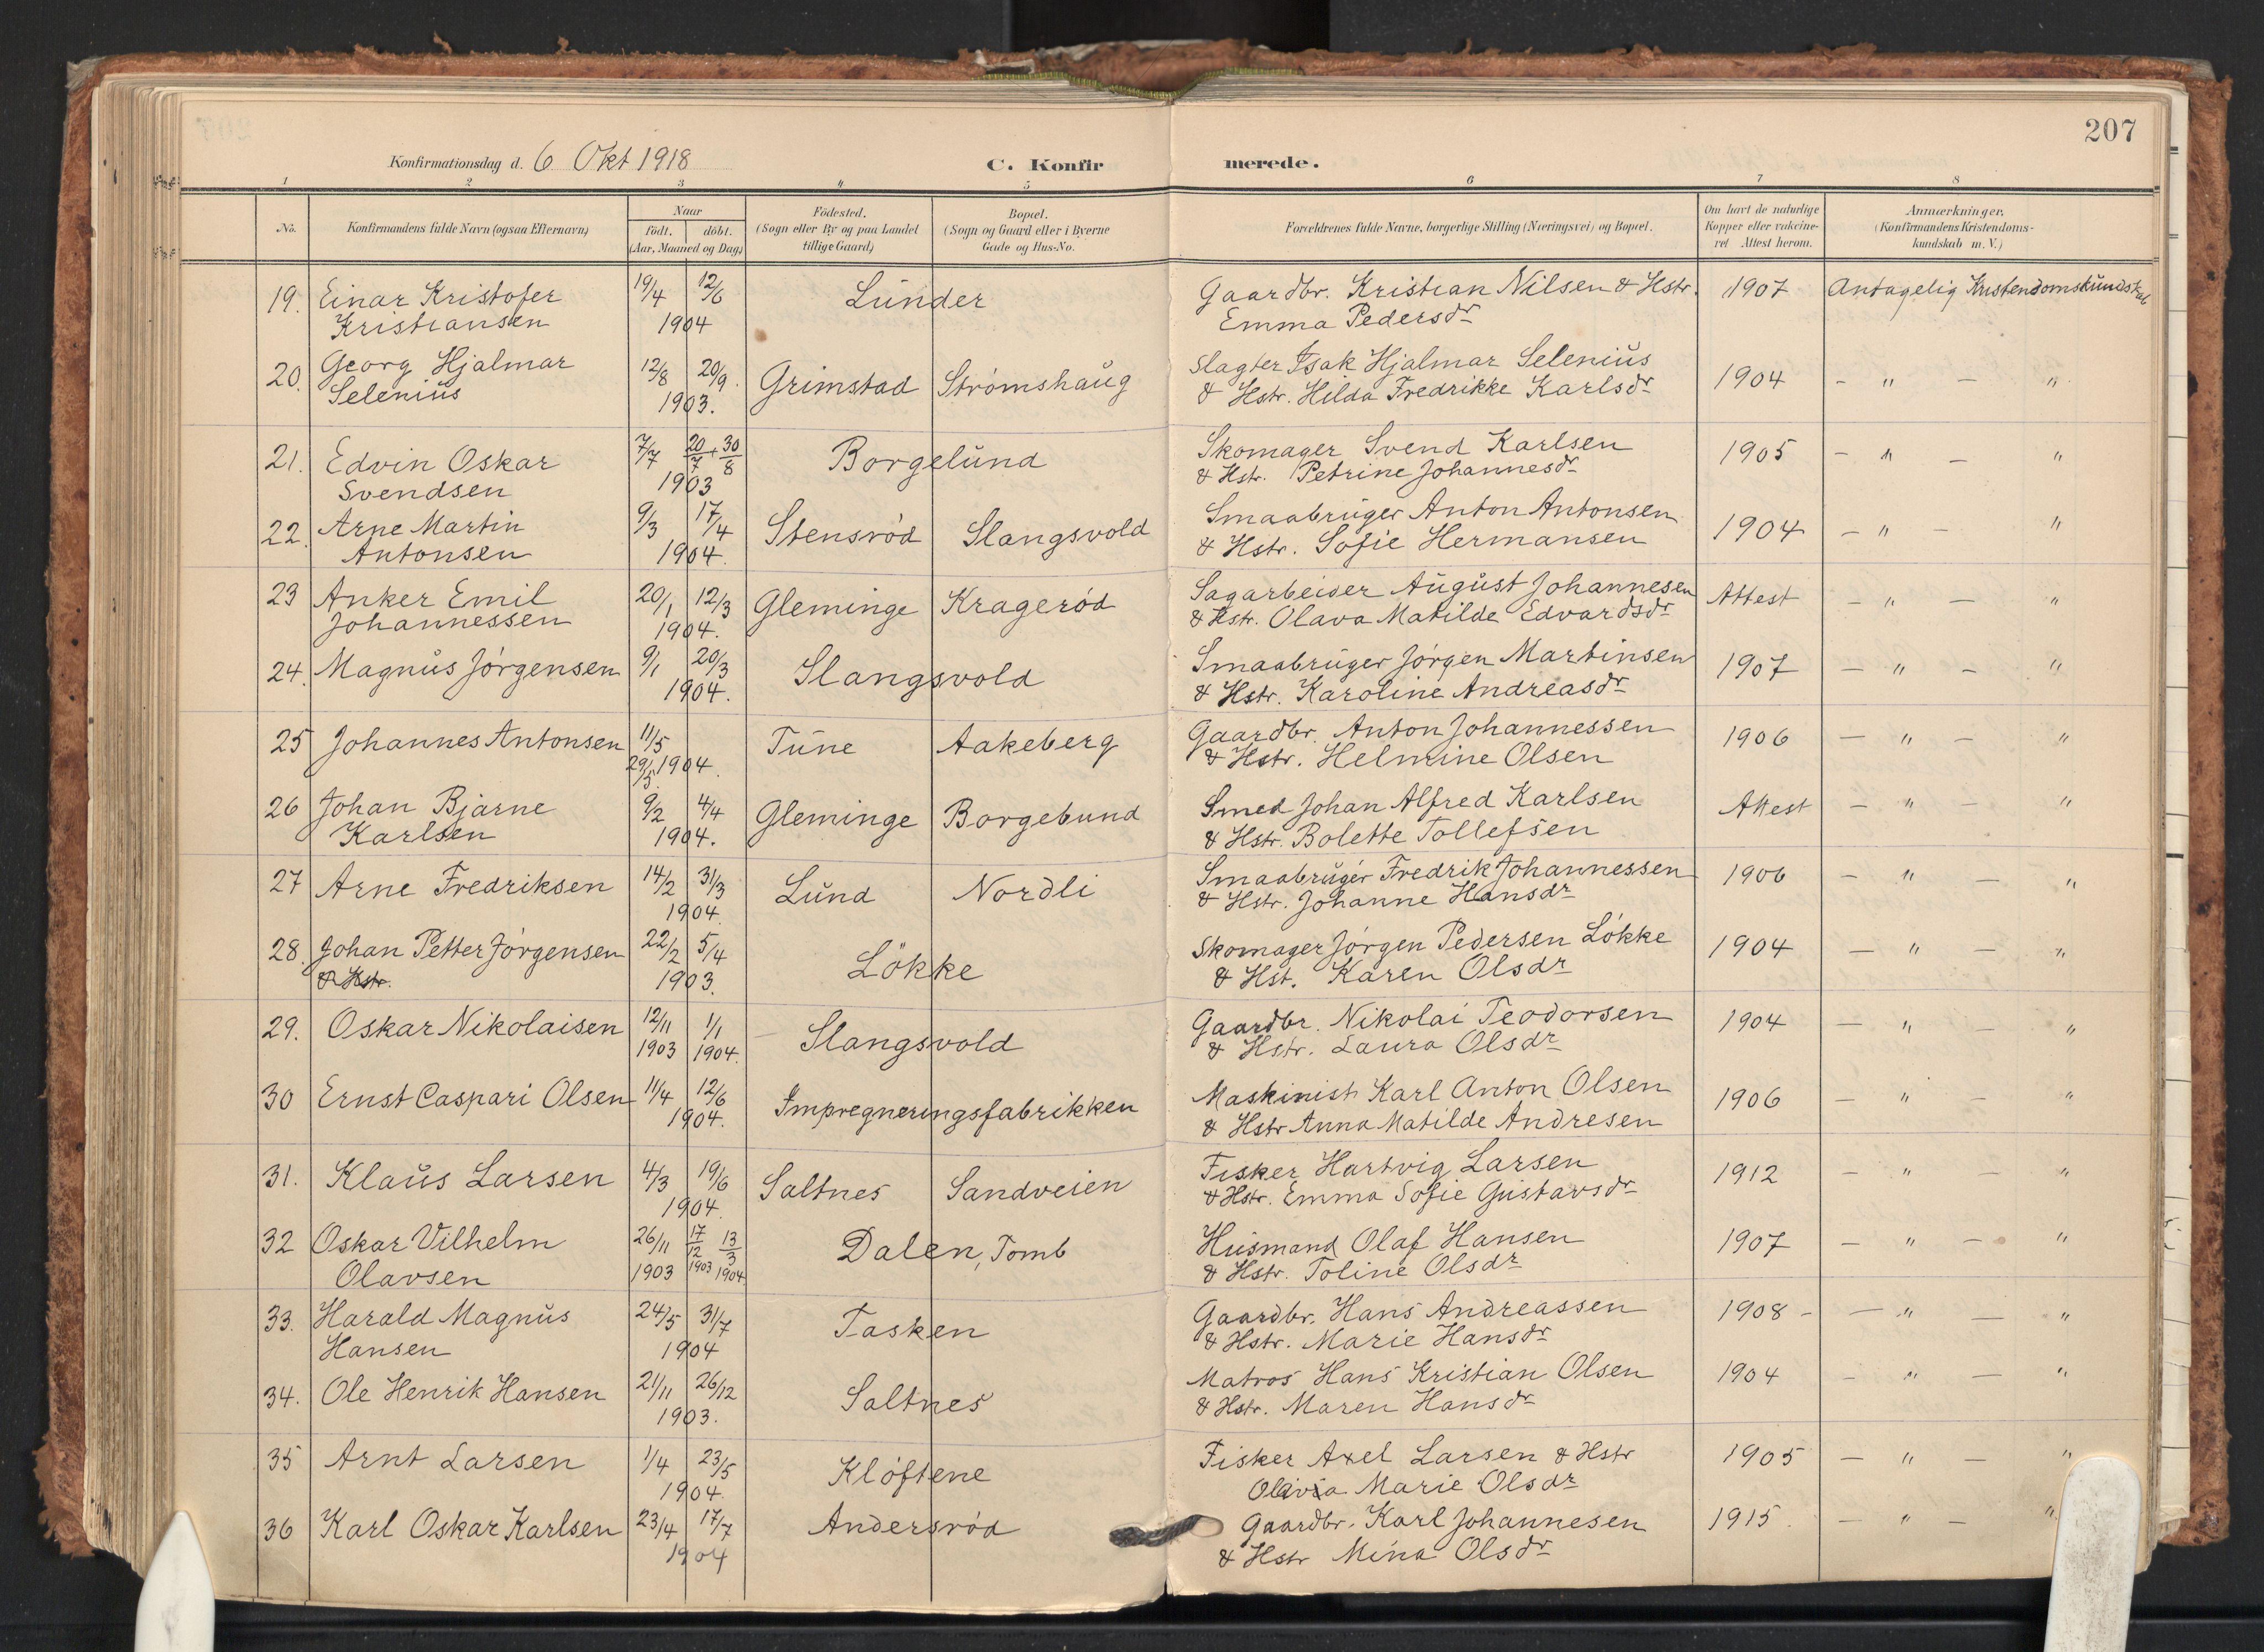 207
Konfirmationsdag d. 6 Okt 1918 C. Konfirmerede.
1 2 3 4 5 6 7 8
No. Konfirmandens fulde Navn (ogsaa Efternavn) Naar født. døbt. (Aar, Maaned og Dag) Födested. (Sogn eller By og paa Landet tillige Gaard) Bopæl. (Sogn og Gaard eller i Byerne Gade og Hus-No. Forældrenes fulde Navne, borgerlige Stilling (Næringsvei) og Bopæl. Om havt de naturlige Kopper eller vakcineret Attest herom. Anmærkninger, (Konfirmandens Kristendomskundskab m. V.)
19. Einar Kristofer 19/4 12/6 Lunder Gaardbr. Kristian Nilsen & Hstr. 1907 Antagelig Kristendomskundskab
Kristiansen 1904 Emma Pedersdr
20. Georg Hjalmar 12/8 20/9. Grimstad Strömshaug Slagter Isak Hjalmar Selenius 1904 - " - "
Selenius 1903. & Hstr. Hilda Fredrikke Karlsdr
21. Edvin Oskar 7/7 20/7 + 30/8 Borgelund Skomager Svend Karlsen 1905 - " - "
Svendsen 1903 & Hstr. Petrine Johannesdr
22. Arne Martin 9/3 17/4 Stensröd Slangsvold Smaabruger Anton Antonsen 1904 - " - "
Antonsen 1904. & Hstr. Sofie Hermansen
23 Anker Emil 20/1 12/3 Gleminge Krageröd Sagarbeider August Johannesen Attest - " - "
Johannessen 1904. & Hstr. Olava Matilde Edvardsdr
24. Magnus Jörgensen 9/1 20/3 Slangsvold Smaabruger Jörgen Martinsen 1907 - " - "
1904. & Hstr. Karoline Andreasdr
25 Johannes Antonsen 11/5 Tune Aakeberg Gaardbr. Anton Johannessen 1906 - " - "
29/5. 1904. & Hstr. Helmine Olsen
26 Johan Bjarne 9/2 4/4 Gleminge Borgebund Smed Johan Alfred Karlsen Attest - " - "
Karlsen 1904. & Hstr. Bolette Tollefsen
27 Arne Fredriksen 14/2 31/3 Lund Nordli Smaabruger Fredrik Johannessen 1906 - " - "
1904 & Hstr. Johanne Hansdr
28. Johan Petter Jörgensen 22/2 5/4 Lökke Skomager Jörgen Pedersen Lökke 1904 - " - "
& Hstr. 1903. & Hst. Karen Olsdr
29. Oskar Nikolaisen 12/11 1/1 Slangsvold Gaardbr. Nikolai Teodorsen 1904 - " - "
1903 1904. & Hstr. Laura Olsdr
30 Ernst Caspari Olsen 11/4 12/6 Impregneringsfabrikken Maskinist Karl Anton Olsen 1906 - " - "
1904. & Hstr Anna Matilde Andresen
31. Klaus Larsen 4/3 19/6 Saltnes Sandveien Fisker Hartvig Larsen 1912 - " - "
1904. & Hstr. Emma Sofie Gustavsdr
32 Oskar Vilhelm 26/11 17/12 13/3 Dalen, Tomb Husmand Olaf Hansen 1907 - " - "
Olavsen 1903 1903 1904 & Hstr. Toline Olsdr
33. Harald Magnus 24/5 31/7 Tasken Gaardbr. Hans Andreassen 1908 - - " - "
Hansen 1904 & Hstr. Marie Hansdr
34. Ole Henrik Hansen 21/11 26/12 Saltnes Matros Hans Kristian Olsen 1904 - " - "
1903. & Hstr. Maren Hansdr
35 Arnt Larsen 1/4 23/5 Klöftene Fisker Axel Larsen & Hstr 1905 - " - "
1904. Olivia Marie Olsdr
36 Karl Oskar Karlsen 23/4 17/7 Andersröd Gaardbr. Karl Johannesen 1915. - " - "
1904 & Hstr Mina Olsdr